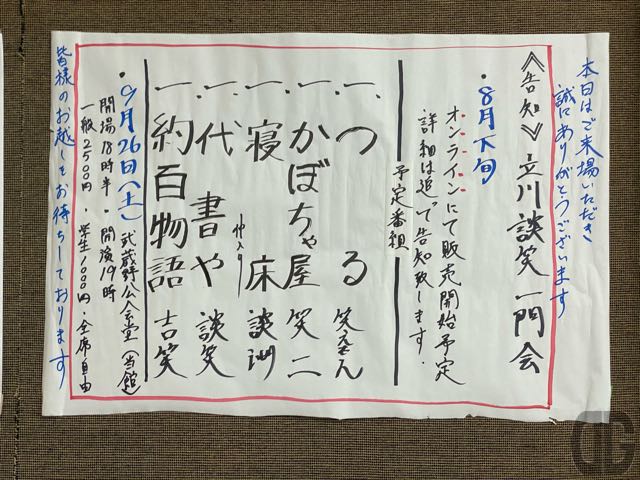 本日はご来場いただき
誠にありがとうございます
《告知》立川談笑一門会
・8月下旬
オンラインにて販売開始予定
詳細は追って告知致します.
予定番組
一、つる 笑えもん
一、かぼちゃ屋 笑二
一、寝床 談洲
仲入り
一、代書や 談笑
一、約百物語 吉笑
・9月26日(土) 武蔵野公会堂(当館)
開場18時半・開演19時
一般2500円・学生100円・全席自由
皆様のお越しをお待ちしております